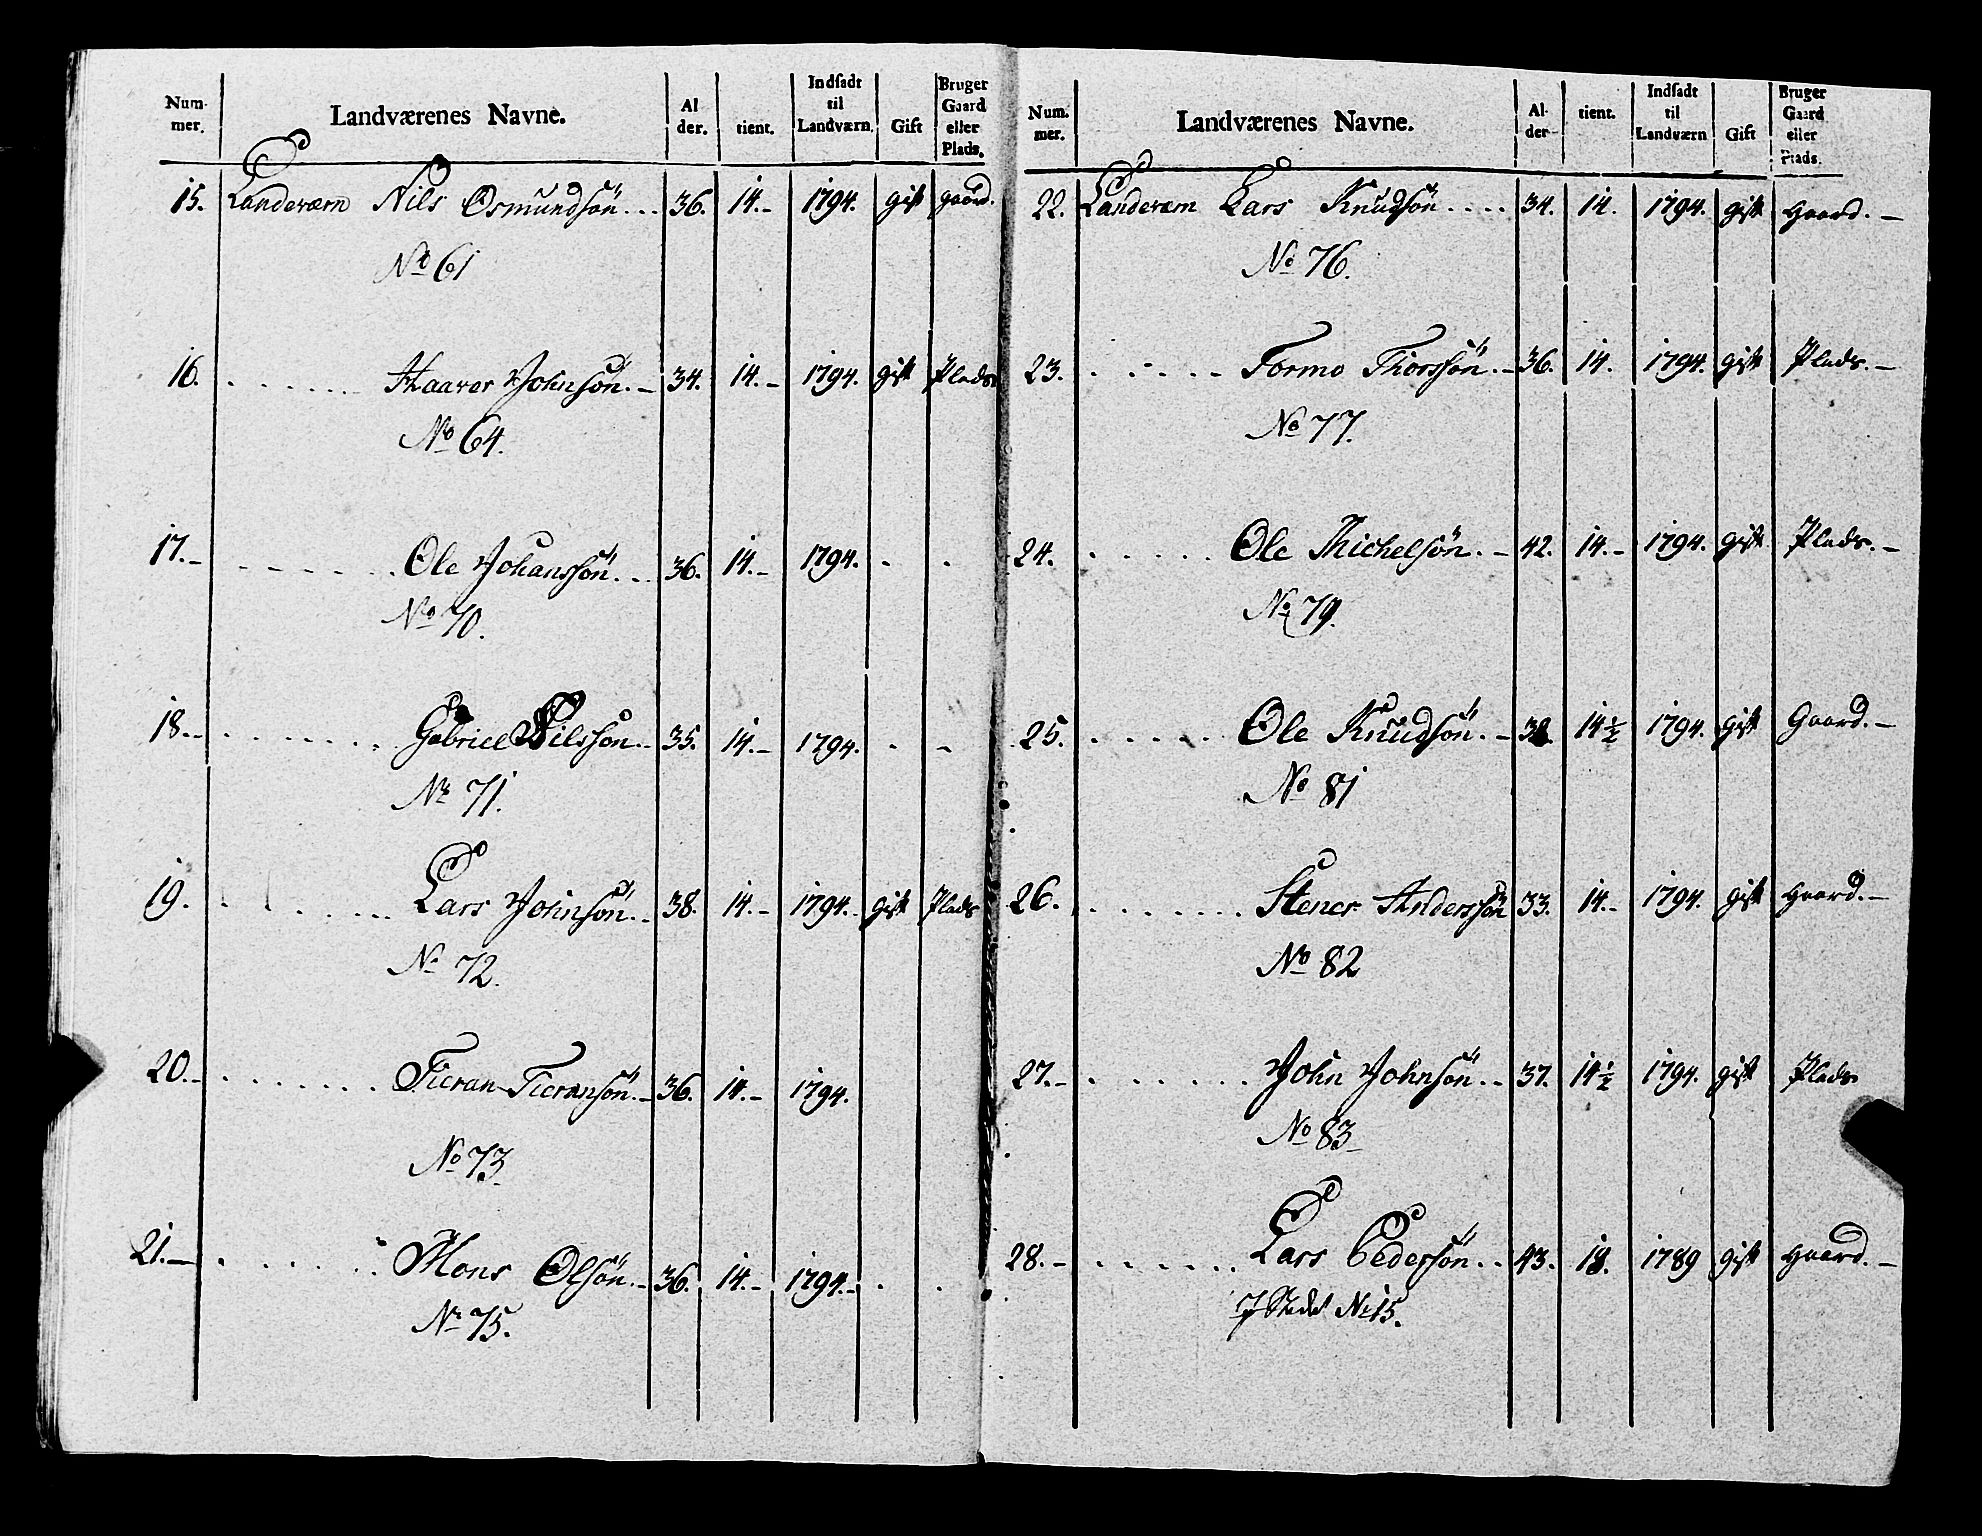 Num- mer. Landværenes Navne. Al der. tient. Indsadt til Landværn. Gift Bruger Gaard eller Plads.
15. Landeværn Nils Osmundsön... 36. 14.- 1794. gift gaard.
No 61
16. ...... Haaver Johnsön.- 34. 14.- 1794. gift Plads
No 64.
17.- ....... Ole Johanssön... 36. 14.- 1794. . .
No 70.
18.- ....... Gabriel Nilsson.. 35. 14.- 1794. . -
No 71.
19. ...... Lars Johnsön.. 38. 14.- 1794.- gift Plads
No 72.
20.- ....... Tieran Tieransön.- 36. 14.- 1794.
No 73.
21.- ...... Mons Olsön.- 36. 14.- 1794.- . .
No 75.
Num. mer. Landværenes Navne. Al- der- tient. Indsadt til Landværn Gift Bruger Gaard eller Plads.
22. Landeværn Lars Knudsön.... 34. 14. 1794. gift Gaard.-
No 76.
23. ...... Tormo Thorssön.- 36. 14. 1794. gift Plads.-
No 77.
24. ...... Ole Michelsön.- 42. 14.- 1794. gift Plads.-
No 79.
25. ...... Ole Knudsön.- 14½ 1794. gift Gaard.-
No 81
26. ....... Stener Anderssön 33. 14.- 1794. gift Gaard.-
No 82
27.- ....... John Johnsön.. 37. 14½ 1794. gift Plads
No 83
28.- ....... Lars Pedersön.. 43. 18. 1789 gift Gaard.-
J Stedet No 15.